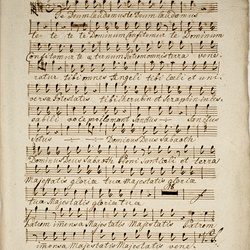 Te Deum laudamus te Deum laudamus
te te te te Dominum Confitemur te Dominum
Confitemur te aeternum Patrem omnis terra vene
ratur tibi omnes Angeli tibi Caeli et uni
versae Potestates tibi Cherubim et Seraphim inces
sabili voce proclamant Sanctus Sanctus
Dominus Deus Sabaoth
Dominus Deus Sabaoth Pleni sunt Caeli et terra
Majestatis gloria tua Majestatis gloria
Majestatis gloria tua
Patrem imensa Majestatis Majestatis Patrem
imensa Majestatis Majestatis vene